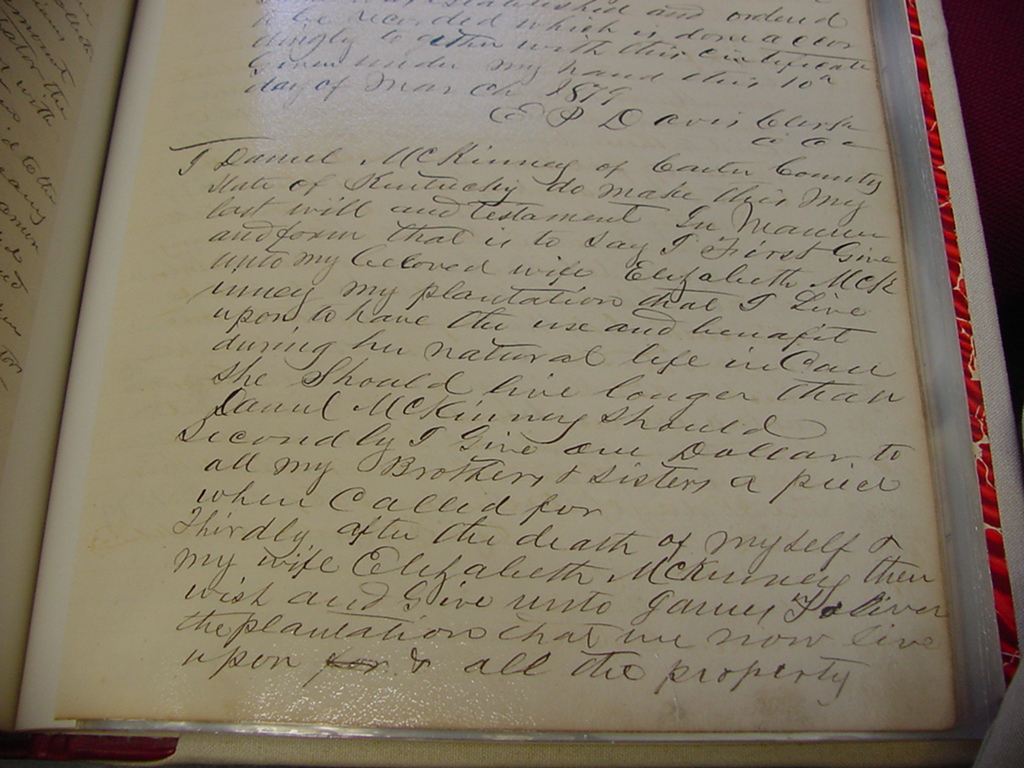 established and ordered
to be recorded which is done accor
dingly to gether with this Certificate
Given under my hand this 10th
day of March 1879
E P Davis Clerk
I Daniel McKinney of Carter County
State of Kentucky do make this my
last will and testament In Manner
and form that is to say I First Give
unto my beloved wife Elizabeth McK
inney my plantation that I Live
upon to have the use and benafit
during her natural life in Case
she Should live longer than
Daniel McKinney Should
Secondly I Give one Dollar to
all my Brothers & Sisters a piece
when Called for
Thirdly after the death of myself &
my wife Elizabeth McKinney then
wish and Give unto James
the plantation that we now live
upon for & all the property